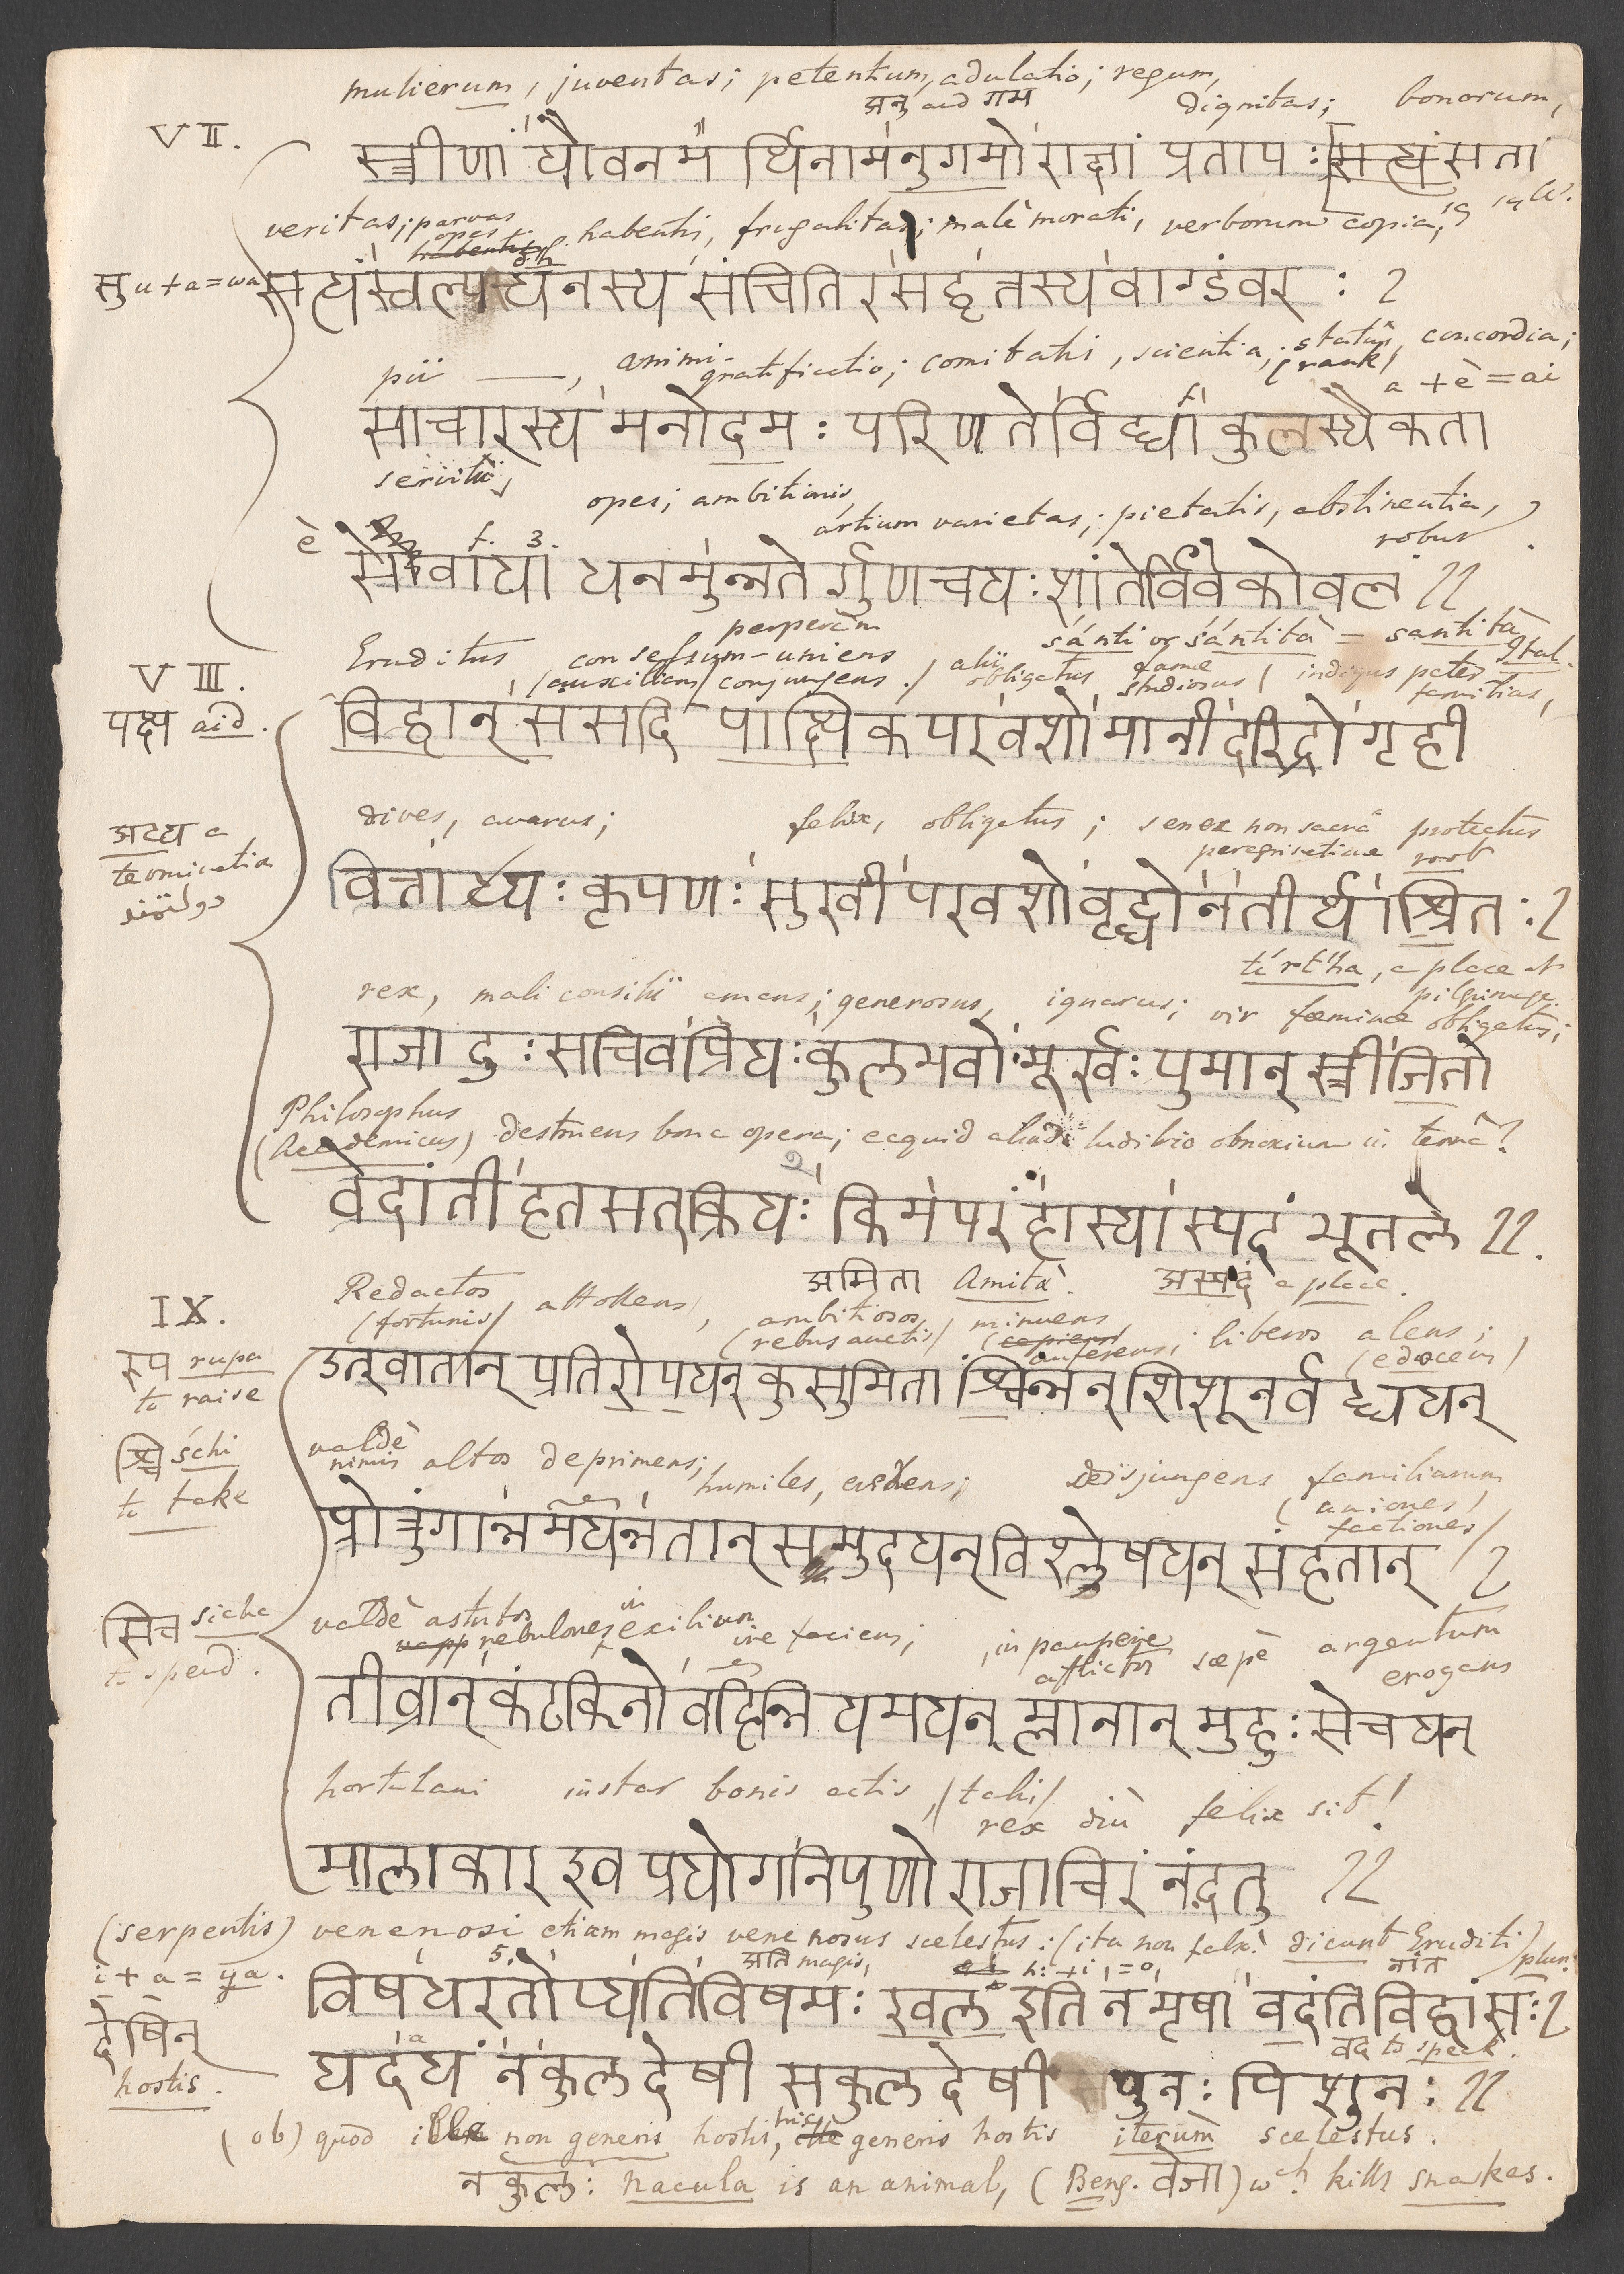 mulierum, juventas; petentium, adulatio; regum, dignitas; bonorum,
अनु and गम
VII.
स्त्रीणां यौवनमर्थिनामनुगमो राज्ञां प्रतापः सत्यं सतां
veritas; parvas opes habentis, frugalitas; malè morati, verborum copia;
सु u+a=wa
सत्यं स्वल्पधनस्य संचितिरसंहृतस्य वाग्डंवरः २
pii —, animi-gratificatio; comitatis, scientia; statûs, concordia;
(rank) a+è=ai
साचारस्य मनोदमः परिणतेर्विद्या कुलस्यैकता
servitii,
opes; ambitionis,
artium varietas; pietatis, abstinentia,
robur.
è f. 3.
सेवाया धनमुन्नतेर्गुणचयः शांतेर्विवेको वल २२
VIII.
Eruditus, consessum-uniens perperàm
sánti or sántità = santità Ital.
(auxilians) conjungens; alii obligatus famæ studiosus; indigus pater familias,
पक्ष aid.
विद्वान् संसदि पाक्षिकः परवशो मानी दरिद्रो गृही
dives, avarus; felix, obligatus; senex non sacrâ protectus
peregrinatione root
अट्य a
terminatio
دولتمند
वित्ताढ्यः कृपणः सुखी परवशो वृद्धो न तीर्थाश्रितः २
tírt'ha, a place of
pilgrimage.
rex, mali consilii amans; generosus, ignarus; vir fœminæ obligatus;
राजा दुःसचिवप्रियः कुलभवो मूर्खः पुमान् स्त्रीजितो
Philosophus
(Academicus) destruens bona opera; ecquid aliud ludibrio obnoxium in terrâ?
वेदांती हतसत्क्रियः किमपरं हास्यास्पदं भूतले २२.
अमिता Amità. अस्पदं a place.
IX.
Redactos attollens, ambitiosos, minuens
(fortunis) (rebus auctis) auferens; liberos alens;
(educens)
रुप rupa
to raise
उत्खातान् प्रतिरोपयन् कुसुमितांश्चिन्वन् शिशून् वर्द्धयन्
श्चि śchi
to take
valdè
nimis altos deprimens; humiles, evehens; disjungens familiarum
(uniones)
factiones
प्रोत्तुंगान्नमयन्नतान् समुदयन् विश्लेषयन् संहतान् २
सिच siche
to spend.
valdè astutos
nebulones in exilium ire faciens; in paupere
afflictos sæpè argentum
erogans
तीव्रान् कंटकिनो वहिर्नियमयन् म्लानान् मुहुः सेचयन्
hortulani instar bonis actis, (talis)
rex diù felix sit!
मालाकार इव प्रयोगनिपुणो राजा चिरं नंदतु २२
(serpentis) venenosi etiam magis venenosus scelestus: (ita non falsò dicunt Eruditi) plur.
i+a=ya. 5. अति magis,
विषधरतोप्यतिविषमः खल इति न मृषा वदंति विद्वांसः २
वद to speak.
द्वेषिन्
hostis.
यदयं नकुलद्वेषी सकुलद्वेषी पुनः पिशुनः २२
(ob) quod ille non generis hostis, hic generis hostis iterùm scelestus.
नकुलः nacula is an animal, (Beng. वेजा) wch. kills snakes.